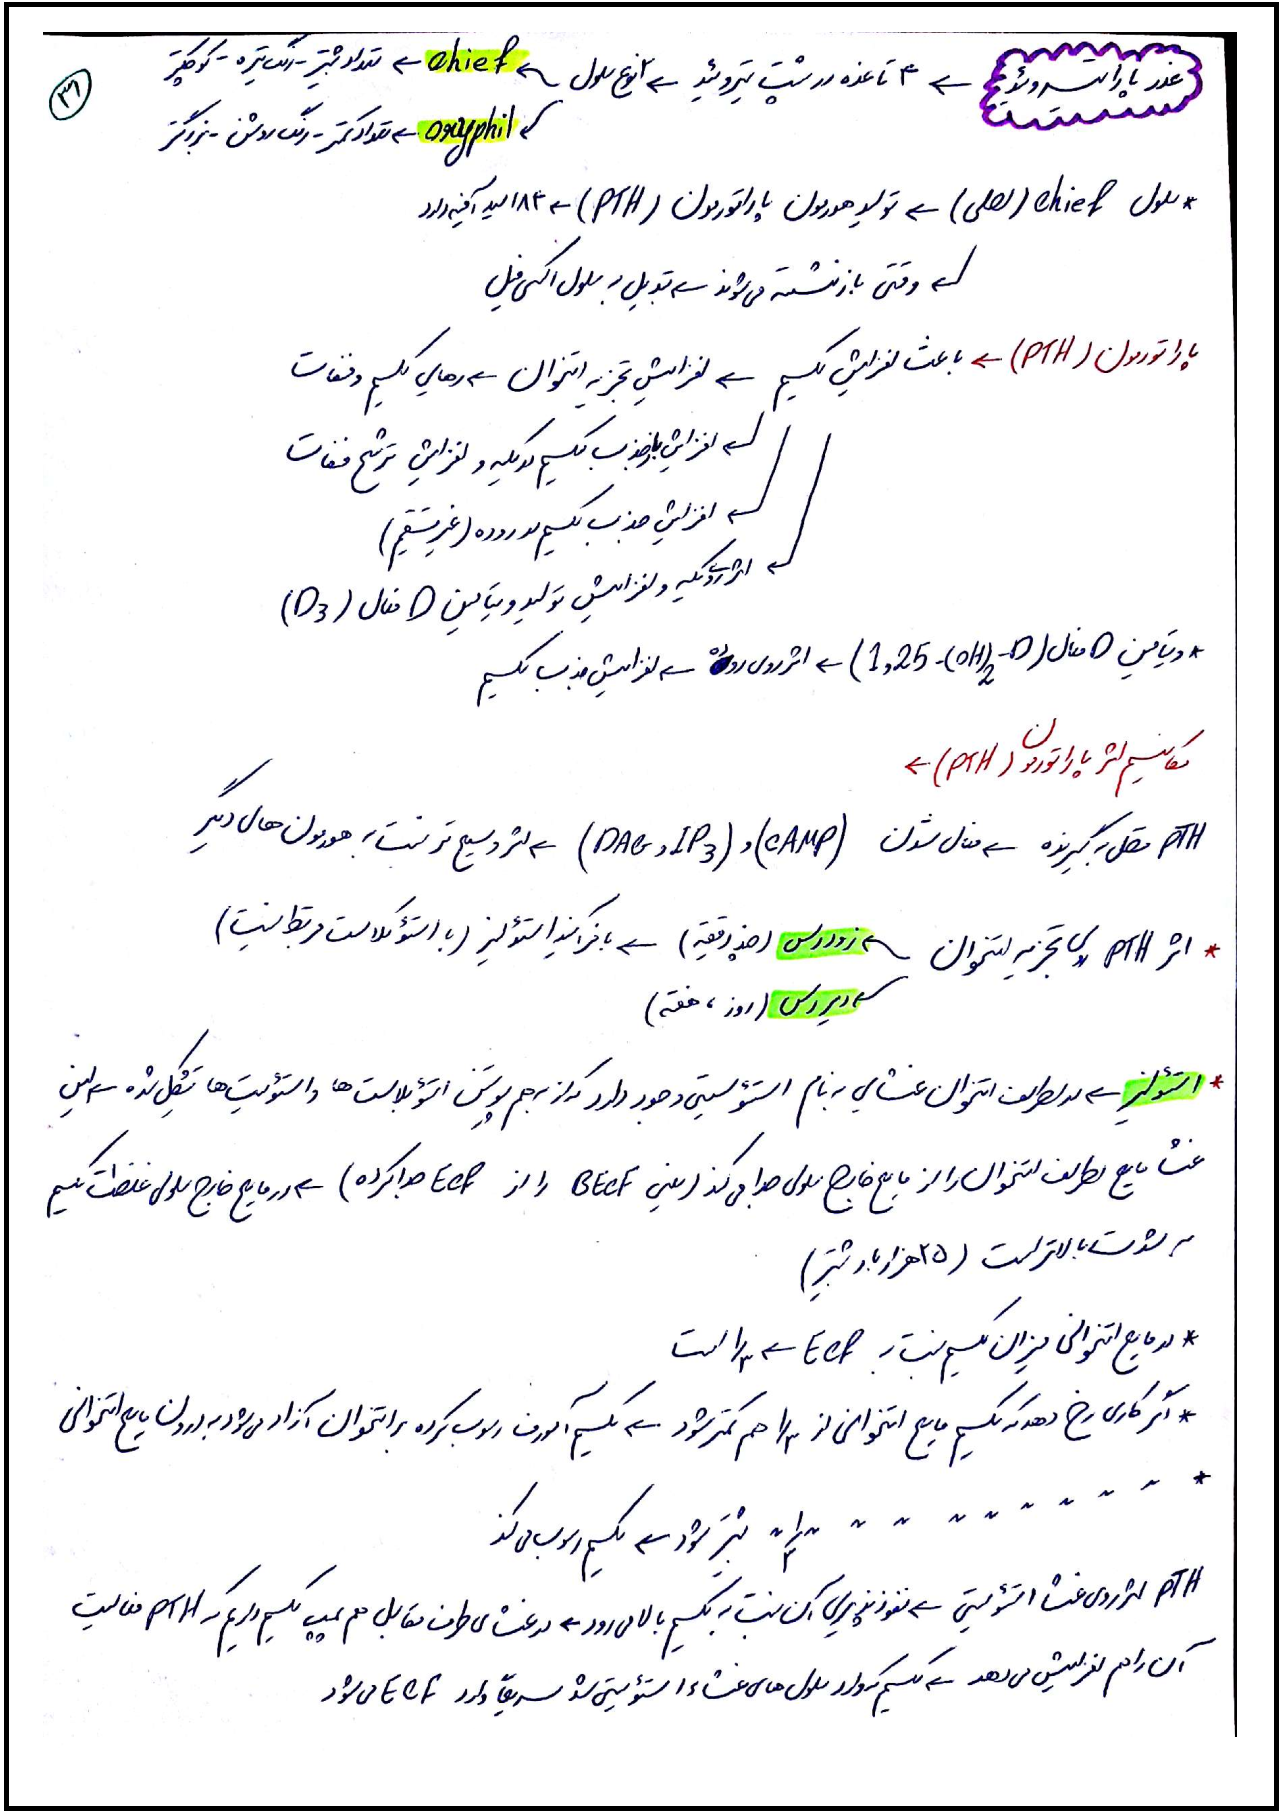 ۳۶
غدد پاراتیروئید ← ۴ تا غده در پشت تیروئید ← ۲ نوع سلول ← chief ← تعداد بیشتر - رنگ تیره - کوچکتر
← oxyphil ← تعداد کمتر - رنگ روشن - بزرگتر
* سلول chief (اصلی) ← تولید هورمون پاراتورمون (PTH) ← ۸۴ اسید آمینه دارد
← وقتی بازنشسته می‌شوند ← تبدیل به سلول اکسی فیل
پاراتورمون (PTH) ← باعث افزایش کلسیم ← افزایش تجزیه استخوان ← رهایی کلسیم و فسفات
← افزایش بازجذب کلسیم در کلیه و افزایش ترشح فسفات
← افزایش جذب کلسیم در روده (غیر مستقیم)
← اثر روی کلیه و افزایش تولید ویتامین D فعال (D3)
* ویتامین D فعال (1,25-(OH)2-D) ← اثر روی روده ← افزایش جذب کلسیم
مکانیسم اثر پاراتورمون (PTH) ←
PTH متصل به گیرنده ← فعال شدن (cAMP) و (IP3 و DAG) ← اثر وسیع تر نسبت به هورمون های دیگر
* اثر PTH برای تجزیه استخوان ← زودرس (چند دقیقه) ← با فرآیند استئولیز (با استئوکلاست مرتبط نیست)
← دیررس (روز، هفته)
* استئولیز ← در اطراف استخوان غشایی به نام استئوسیتی وجود دارد که از به هم پیوستن استئوبلاست ها و استئوسیت ها تشکیل شده ← این
غشا مایع اطراف استخوان را از مایع خارج سلولی جدا می کند (یعنی BECF را از ECF جدا کرده) ← در مایع خارج سلولی غلظت کلسیم
به شدت بالاتر است (۲۵ هزار بار بیشتر)
* در مایع استخوانی میزان کلسیم نسبت به ECF ← ۱/۳ است
* اگر کاری رخ دهد که کلسیم مایع استخوانی از ۱/۳ هم کمتر شود ← کلسیم آمورف رسوب کرده بر استخوان آزاد می‌شود به درون مایع استخوانی
* " " " " " " " " " " ۱/۳ " بیشتر شود ← کلسیم رسوب می کند
PTH اثر روی غشا استئوسیتی ← نفوذپذیری آن نسبت به کلسیم بالا می رود ← در غشای طرف مقابل هم پمپ کلسیم داریم که PTH فعالیت
آن را هم افزایش می دهد ← کلسیم که وارد سلول های غشاء استئوسیتی شد سریعاً وارد ECF می شود